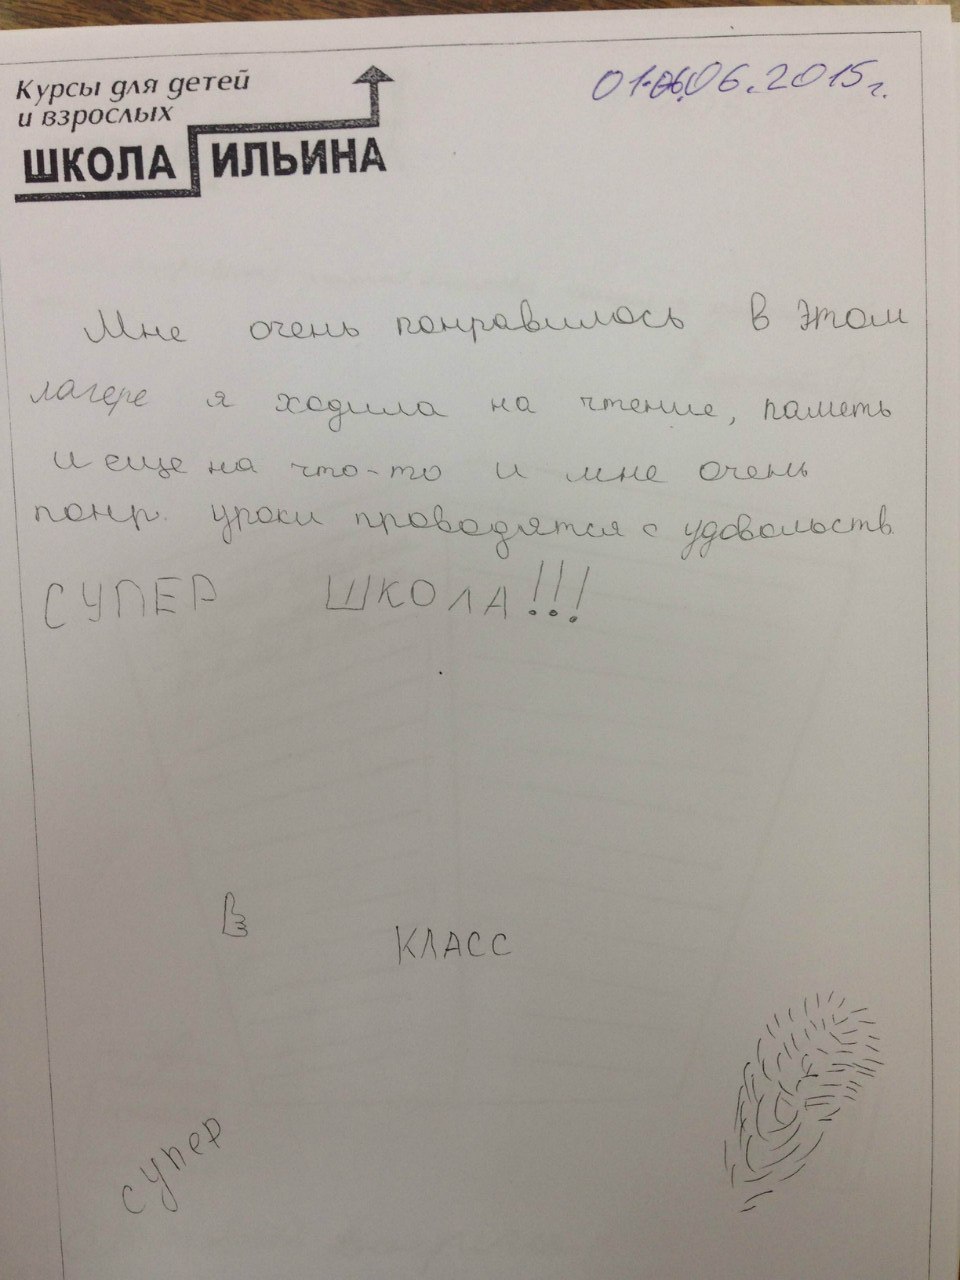 Курсы для детей
и взрослых
ШКОЛА ИЛЬИНА
01.06.2015г.
Мне очень понравилось в этом
лагере я ходила на чтение, паметь
и еще на что-то и мне очень
понр. уроки проводятся с удовольств.
СУПЕР ШКОЛА!!!
КЛАСС
супер